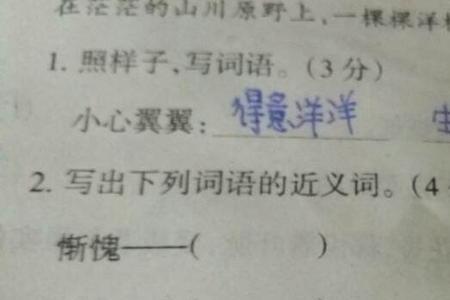 在茫茫的山川原野上,一棵棵洋
1. 照样子,写词语。(3分)
小心翼翼: 得意洋洋 生
2. 写出下列词语的近义词。(4
惭愧——( )